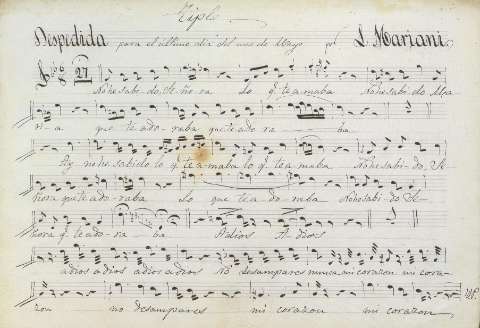 Tiple
Despedida para el ultimo dia del mes de Mayo por L. Mariani.
27
No he sabi-do Se-ño-ra Lo q.e te a maba No he sabi-do Ma
ri-a que te ado-raba que te ado ra - - ba
Ay no he sabido lo q.e te a maba lo q.e te a maba No he sabi-do Se-
ñora que te ado-raba Lo que te a-do-raba No he sabi-do Se-
ñora q.e te ado-ra-ba Adios A-dios
adios adios adios adios No desampares nunca mi corazon mi cora-
zon no desampares mi corazon mi corazon,